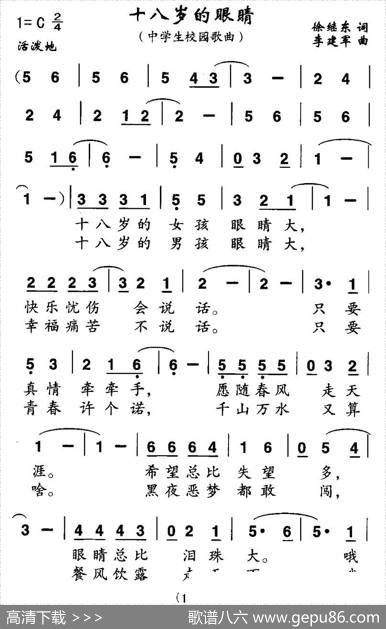 十八岁的眼睛
(中学生校园歌曲)
1=C 2/4
活泼地
徐继东 词
李建军 曲
(5 6 | 5 6 | 5 6 5 3 | 3 - | 2 4 |
2 4 | 2 1 2 | 2 - | 5 6 | 5 6 |
5 1 6 | 6 - | 5 4 | 0 3 2 | 1 - |
1 -) | 3 3 3 1 | 5 5 | 3 2 1 | 1 - |
十八岁的 女孩 眼睛大,
十八岁的 男孩 眼睛大,
2 2 2 3 | 3 2 1 | 2 - | 2 - | 3· 1 |
快乐忧伤 会说话。 只要
幸福痛苦 不说话。 只要
5 3 | 2 1 6 | 6 - | 5 5 5 5 | 0 3 2 |
真情牵牵手, 愿随春风 走天
青春许个诺, 千山万水 又算
1 - | 1 - | 6 6 6 4 | 1 6 | 0 5 4 |
涯。 希望总比 失望 多,
啥。 黑夜恶梦 都敢 闯,
3 - | 4 4 4 3 | 0 2 1 | 5· 6 | 5· 1 |
眼睛总比 泪珠大。 哦
餐风饮露
(1
高清下载 >>>
歌谱八六 www.gepu86.com